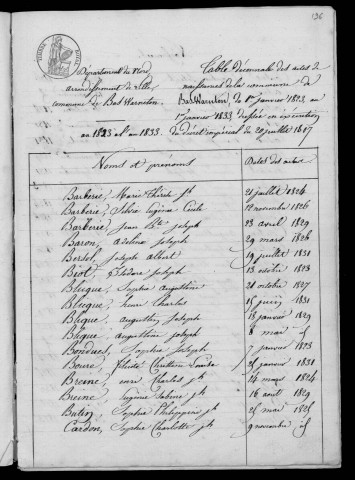 136
Département du Nord
arrondissement de Lille
commune de Bas Warneton
an 1823 à l'an 1833.
Table Décennale des actes de
naissances de la commune de
Bas Warneton, du 1er janvier 1823, au
1er janvier 1833 dressée en exécution
du décret impérial du 20 juillet 1807
Noms et prénoms Dates des actes
Barberie, Marie Thérèse jh 21 juillet 1824
Barberie, Silvie Eugénie Cécile 12 novembre 1826
Barberie, jean Bte joseph 23 avril 1829
Baron, adeline joseph 29 mars 1826
Bertol, joseph albert 19 juillet 1831
Biot, joseph 13 octobre 1823
Blique, Sophie augustine 21 octobre 1827
Blique, henri Charles 15 juin 1831
Blique, augustin joseph 18 janvier 1829
Blique, augustine joseph 8 mai
Bonduel, Sophie joseph 7 janvier 1823
Bourre, Christine 25 janvier 1831
Breine, Charles jh 14 mars 1824
Breine, Eugénie Sabine jh 16 août 1829
Butin, Sophie Philippine jh 25 mai
Cardon, Sophie Charlotte jh 9 novembre